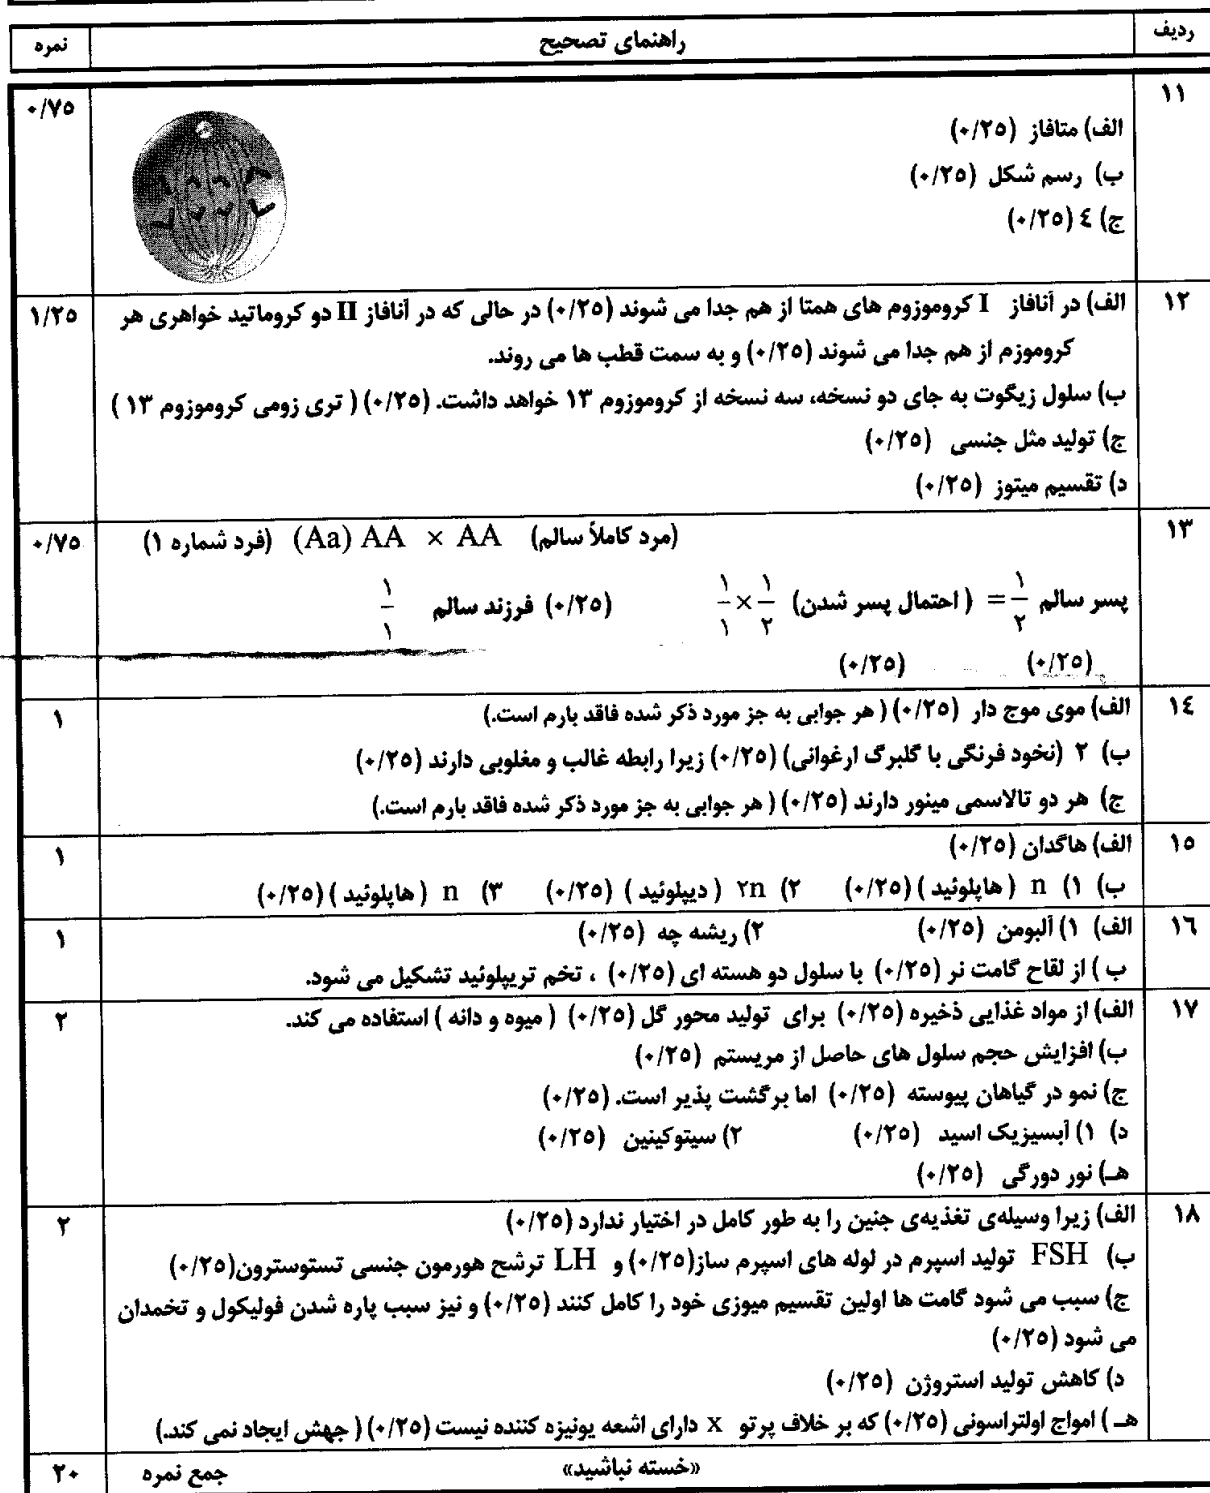 ردیف راهنمای تصحیح نمره
۱۱ ۰/۷۵
الف) متافاز (۰/۲۵)
ب) رسم شکل (۰/۲۵)
ج) ٤ (۰/۲۵)
۱۲ الف) در آنافاز I کروموزوم های همتا از هم جدا می شوند (۰/۲۵) در حالی که در آنافاز II دو کروماتید خواهری هر ۱/۲۵
کروموزم از هم جدا می شوند (۰/۲۵) و به سمت قطب ها می روند.
ب) سلول زیگوت به جای دو نسخه، سه نسخه از کروموزوم ۱۳ خواهد داشت. (۰/۲۵) ( تری زومی کروموزوم ۱۳ )
ج) تولید مثل جنسی (۰/۲۵)
د) تقسیم میتوز (۰/۲۵)
۱۳ (مرد کاملاً سالم) (Aa) AA × AA (فرد شماره ۱) ۰/۷۵
پسر سالم ۱/۲ = ( احتمال پسر شدن) ۱/۲ × ۱/۱ (۰/۲۵) فرزند سالم ۱/۱
(۰/۲۵) (۰/۲۵)
۱٤ الف) موی موج دار (۰/۲۵) ( هر جوابی به جز مورد ذکر شده فاقد بارم است.) ۱
ب) ۲ (نخود فرنگی با گلبرگ ارغوانی) (۰/۲۵) زیرا رابطه غالب و مغلوبی دارند (۰/۲۵)
ج) هر دو تالاسمی مینور دارند (۰/۲۵) ( هر جوابی به جز مورد ذکر شده فاقد بارم است.)
۱۵ الف) هاگدان (۰/۲۵) ۱
ب) ۱) n ( هاپلوئید ) (۰/۲۵) ۲) ۲n ( دیپلوئید ) (۰/۲۵) ۳) n ( هاپلوئید ) (۰/۲۵)
۱٦ الف) ۱) آلبومن (۰/۲۵) ۲) ریشه چه (۰/۲۵) ۱
ب ) از لقاح گامت نر (۰/۲۵) با سلول دو هسته ای (۰/۲۵) ، تخم تریپلوئید تشکیل می شود.
۱۷ الف) از مواد غذایی ذخیره (۰/۲۵) برای تولید محور گل (۰/۲۵) ( میوه و دانه ) استفاده می کند. ۲
ب) افزایش حجم سلول های حاصل از مریستم (۰/۲۵)
ج) نمو در گیاهان پیوسته (۰/۲۵) اما برگشت پذیر است. (۰/۲۵)
د) ۱) آبسیزیک اسید (۰/۲۵) ۲) سیتوکینین (۰/۲۵)
هـ) نور دورگی (۰/۲۵)
۱۸ الف) زیرا وسیله‌ی تغذیه‌ی جنین را به طور کامل در اختیار ندارد (۰/۲۵) ۲
ب) FSH تولید اسپرم در لوله های اسپرم ساز(۰/۲۵) و LH ترشح هورمون جنسی تستوسترون(۰/۲۵)
ج) سبب می شود گامت ها اولین تقسیم میوزی خود را کامل کنند (۰/۲۵) و نیز سبب پاره شدن فولیکول و تخمدان
می شود (۰/۲۵)
د) کاهش تولید استروژن (۰/۲۵)
هـ ) امواج اولتراسونی (۰/۲۵) که بر خلاف پرتو x دارای اشعه یونیزه کننده نیست (۰/۲۵) ( جهش ایجاد نمی کند.)
«خسته نباشید» جمع نمره ۲۰